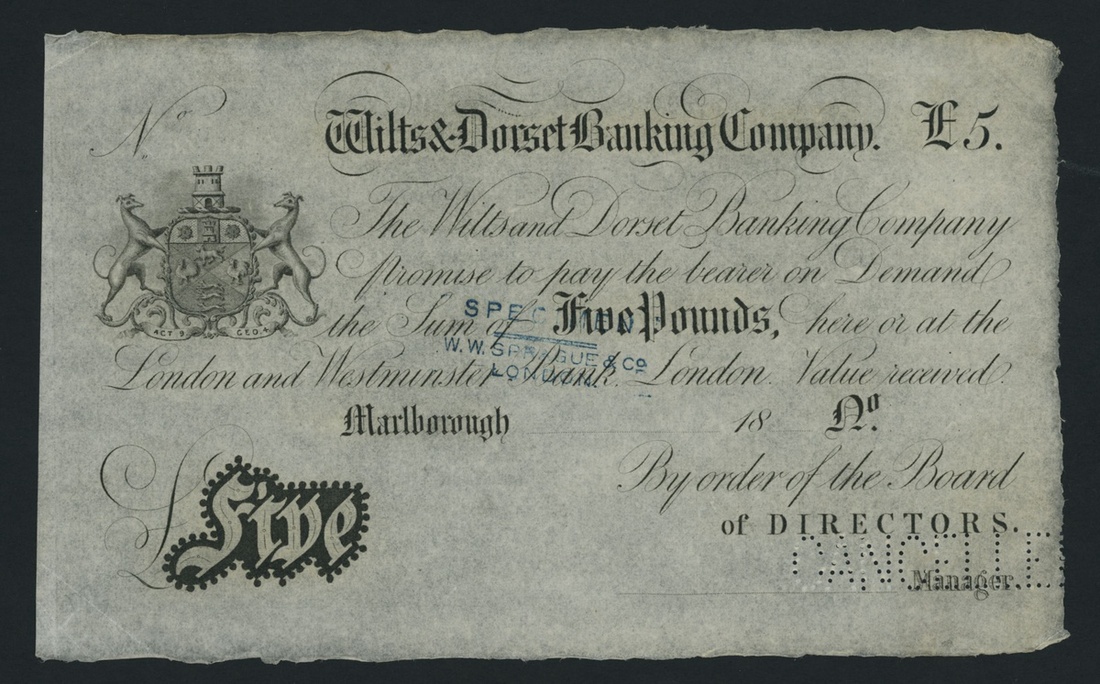 No
Wilts & Dorset Banking Company. £5.
The Wilts and Dorset Banking Company
promise to pay the bearer on Demand
the Sum of Five Pounds, here or at the
London and Westminster Bank. London. Value received.
SPECIMEN
W.W. SPRAGUE & Co
LONDON
ACT 9 GEO. 4
Marlborough 18 No.
By order of the Board
of DIRECTORS.
£ Five
CANCELLE
Manager.